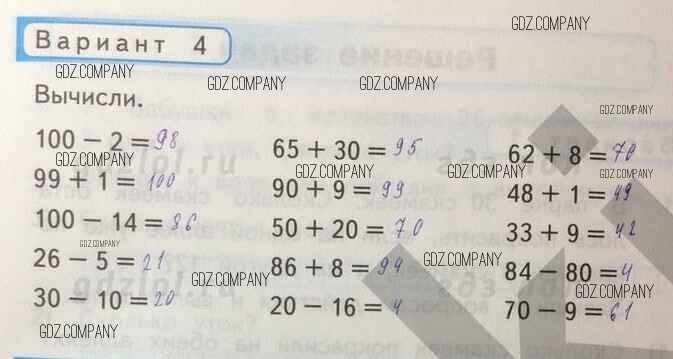 GDZ.COMPANY
Вариант 4
GDZ.COMPANY GDZ.COMPANY GDZ.COMPANY
Вычисли.
GDZ.COMPANY
100 − 2 = 98
65 + 30 = 95
62 + 8 = 70
GDZ.COMPANY GDZ.COMPANY GDZ.COMPANY
99 + 1 = 100
90 + 9 = 99
48 + 1 = 49
GDZ.COMPANY
100 − 14 = 86
50 + 20 = 70
33 + 9 = 42
GDZ.COMPANY GDZ.COMPANY GDZ.COMPANY
26 − 5 = 21
86 + 8 = 94
84 − 80 = 4
GDZ.COMPANY GDZ.COMPANY
30 − 10 = 20
20 − 16 = 4
70 − 9 = 61
GDZ.COMPANY GDZ.COMPANY